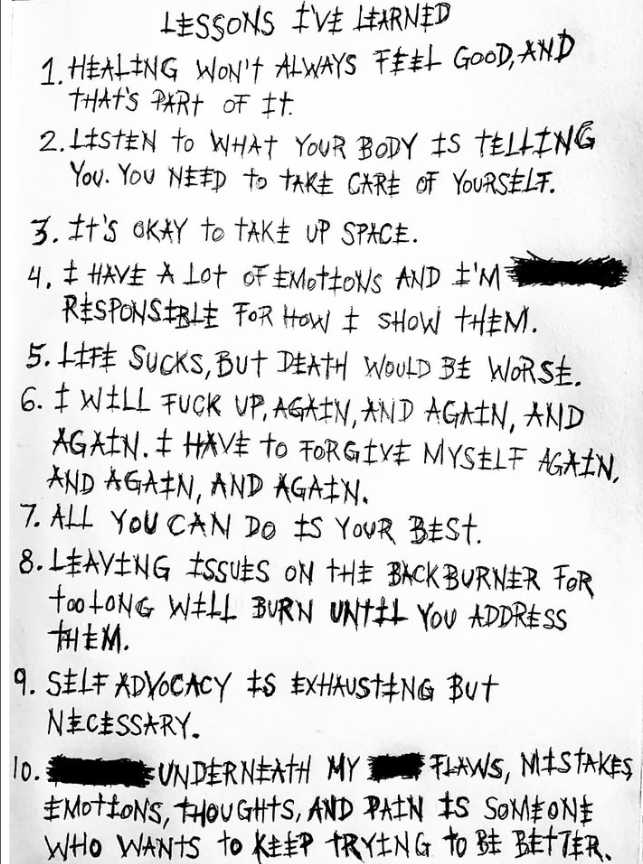 LESSONS I'VE LEARNED
1. HEALING WON'T ALWAYS FEEL GOOD, AND
THAT'S PART OF IT.
2. LISTEN TO WHAT YOUR BODY IS TELLING
YOU. YOU NEED TO TAKE CARE OF YOURSELF.
3. IT'S OKAY TO TAKE UP SPACE.
4. I HAVE A LOT OF EMOTIONS AND I'M
RESPONSIBLE FOR HOW I SHOW THEM.
5. LIFE SUCKS, BUT DEATH WOULD BE WORSE.
6. I WILL FUCK UP, AGAIN, AND AGAIN, AND
AGAIN. I HAVE TO FORGIVE MYSELF AGAIN,
AND AGAIN, AND AGAIN.
7. ALL YOU CAN DO IS YOUR BEST.
8. LEAVING ISSUES ON THE BACKBURNER FOR
TOO LONG WILL BURN UNTIL YOU ADDRESS
THEM.
9. SELF ADVOCACY IS EXHAUSTING BUT
NECESSARY.
10. UNDERNEATH MY FLAWS, MISTAKES
EMOTIONS, THOUGHTS, AND PAIN IS SOMEONE
WHO WANTS TO KEEP TRYING TO BE BETTER.